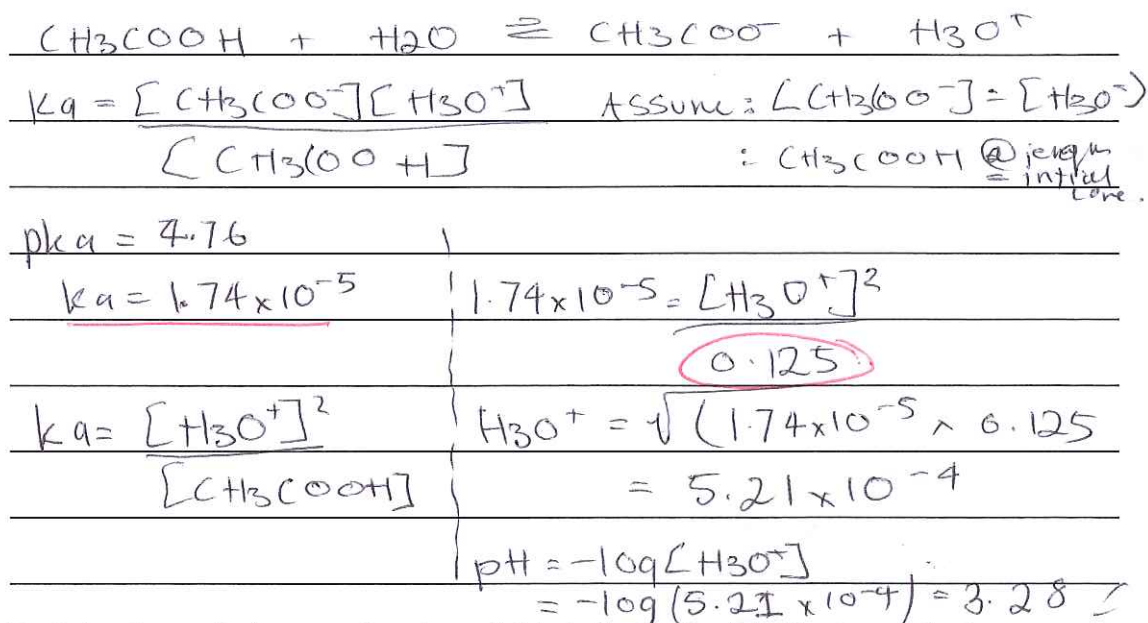 CH3COOH + H2O ⇌ CH3COO⁻ + H3O⁺
Ka = [CH3COO⁻][H3O⁺] / [CH3COOH]
Assume: [CH3COO⁻] = [H3O⁺]
: CH3COOH @ = intial conc.
pka = 4.76
ka = 1.74x10⁻⁵
ka = [H3O⁺]² / [CH3COOH]
1.74x10⁻⁵ = [H3O⁺]² / 0.125
H3O⁺ = √(1.74x10⁻⁵ x 0.125
= 5.21x10⁻⁴
pH = -log[H3O⁺]
= -log(5.21x10⁻⁴) = 3.28